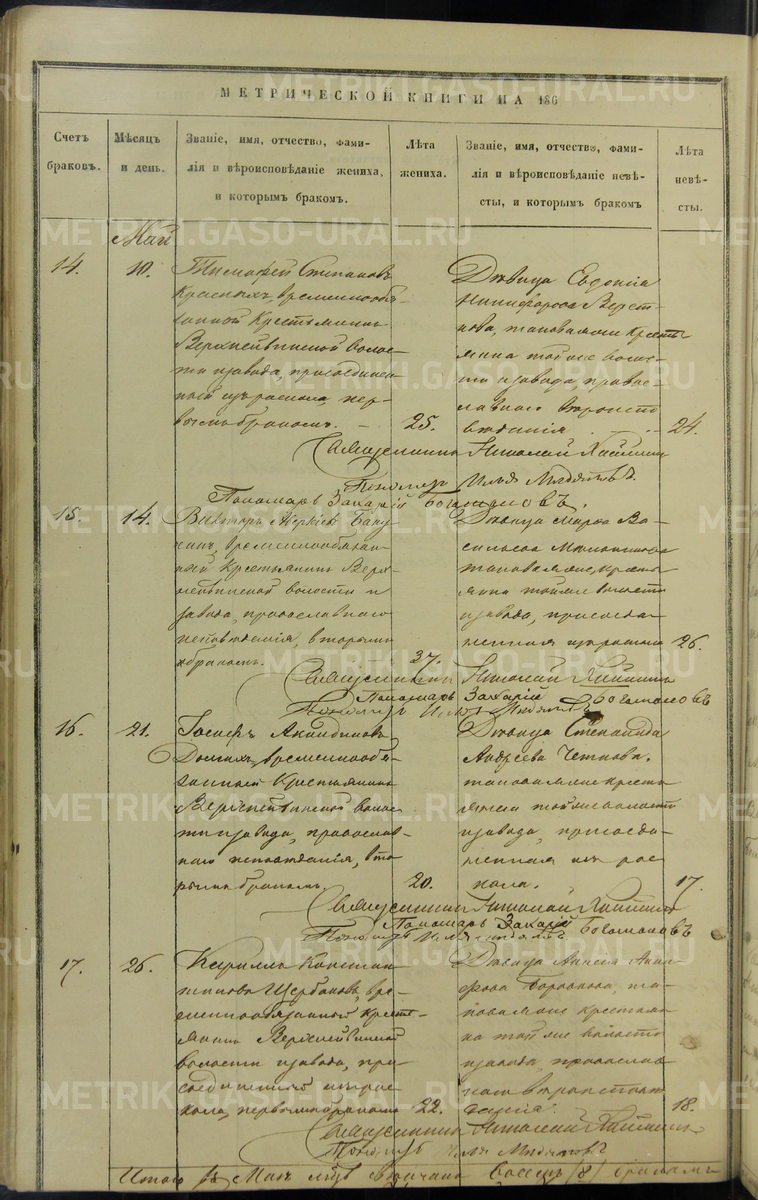 МЕТРИЧЕСКОЙ КНИГИ НА 186
Счетъ браковъ.
Мѣсяцъ и день.
Званіе, имя, отчество, фами-
лія и вѣроисповѣданіе жениха,
и которымъ бракомъ.
Лѣта жениха.
Званіе, имя, отчество, фами-
лія и вѣроисповѣданіе невѣ-
сты, и которымъ бракомъ
Лѣта невѣ-
сты.
Май
14.
10.
Тимофей Степановъ
Красныхъ, временнообя-
занной Крестьянинъ
Верхнейвинской волос-
ти и завода, присоединен-
ный изъ раскола, пер-
вымъ бракомъ.
25.
Дѣвица Евдокія
Никифорова
такова же кресть
янина той же волос-
ти и завода, право-
славнаго вѣроиспо
вѣданія
24.
Священникъ Николай
Пономарь Илья
Пономарь Захарій Богомоловъ.
15.
14.
Викторъ
временнообязан-
ный Крестьянинъ Верх-
нейвинской волости и
завода, православнаго
исповѣданія, вторымъ
бракомъ.
37.
Дѣвица Марѳа Ва-
сильева
такова же, кресть
янина той же волости
и завода, присоеди-
ненная изъ раскола
26.
Священникъ Николай
Пономарь Захарій Богомоловъ
Пономарь Илья
16.
21.
Іосифъ Акиндиновъ
временнообя-
занный Крестьянинъ
Верхнейвинской волос
ти и завода, православ-
наго исповѣданія, вто
рымъ бракомъ.
20.
Дѣвица Степанида
Андреева
такова же кресть
янина той же волости
и завода, присоеди-
ненная изъ рас
кола.
17.
Священникъ Николай
Пономарь Захарій Богомоловъ
Пономарь Илья
17.
26.
Кириллъ Констан
тиновъ Щербаковъ, вре-
меннообязанной кресть-
янинъ Верхнейвинской
волости и завода, при-
соединенный изъ рас
кола, первымъ бракомъ
22.
Дѣвица
та-
кова же крестьяни
на той же волости
и завода, православ
наго вѣроиспо
вѣданія.
18.
Священникъ Николай
Пономарь Илья
Итого въ Маѣ м-цѣ вѣнчано восемь (8) браковъ
METRIKI.GASO-URAL.RU